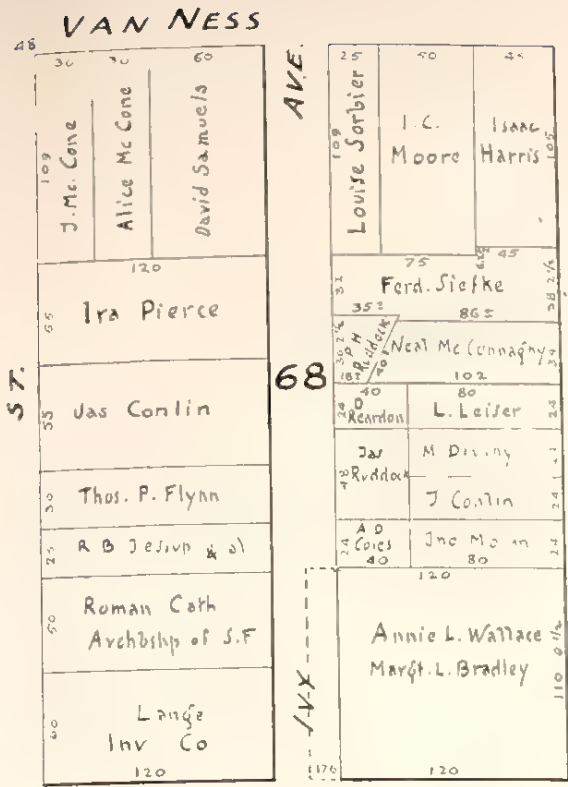 VAN NESS
AVE.
ST.
48
30
30
60
109
J. Mc. Cone
Alice Mc Cone
David Samuels
120
Ira Pierce
55
Jas Conlin
55
Thos. P. Flynn
30
R B Jessup & al
25
Roman Cath
Archbshp of S.F
50
Lange
Inv Co
60
120
68
25
50
45
109
Louise Sorbier
I. C.
Moore
Isaac
Harris
105
75
45
32
Ferd. Siefke
38 2½
35
86
P H
Ruddock
Neal Mc Connaghy
102
40
80
24
D
Reardon
L. Leiser
24
48
Jas
Ruddock
M Diviny
J Conlin
24
24
A D
Jno Mo
24
40
80
120
Annie L. Wallace
Margt. L. Bradley
110 0½
176
120